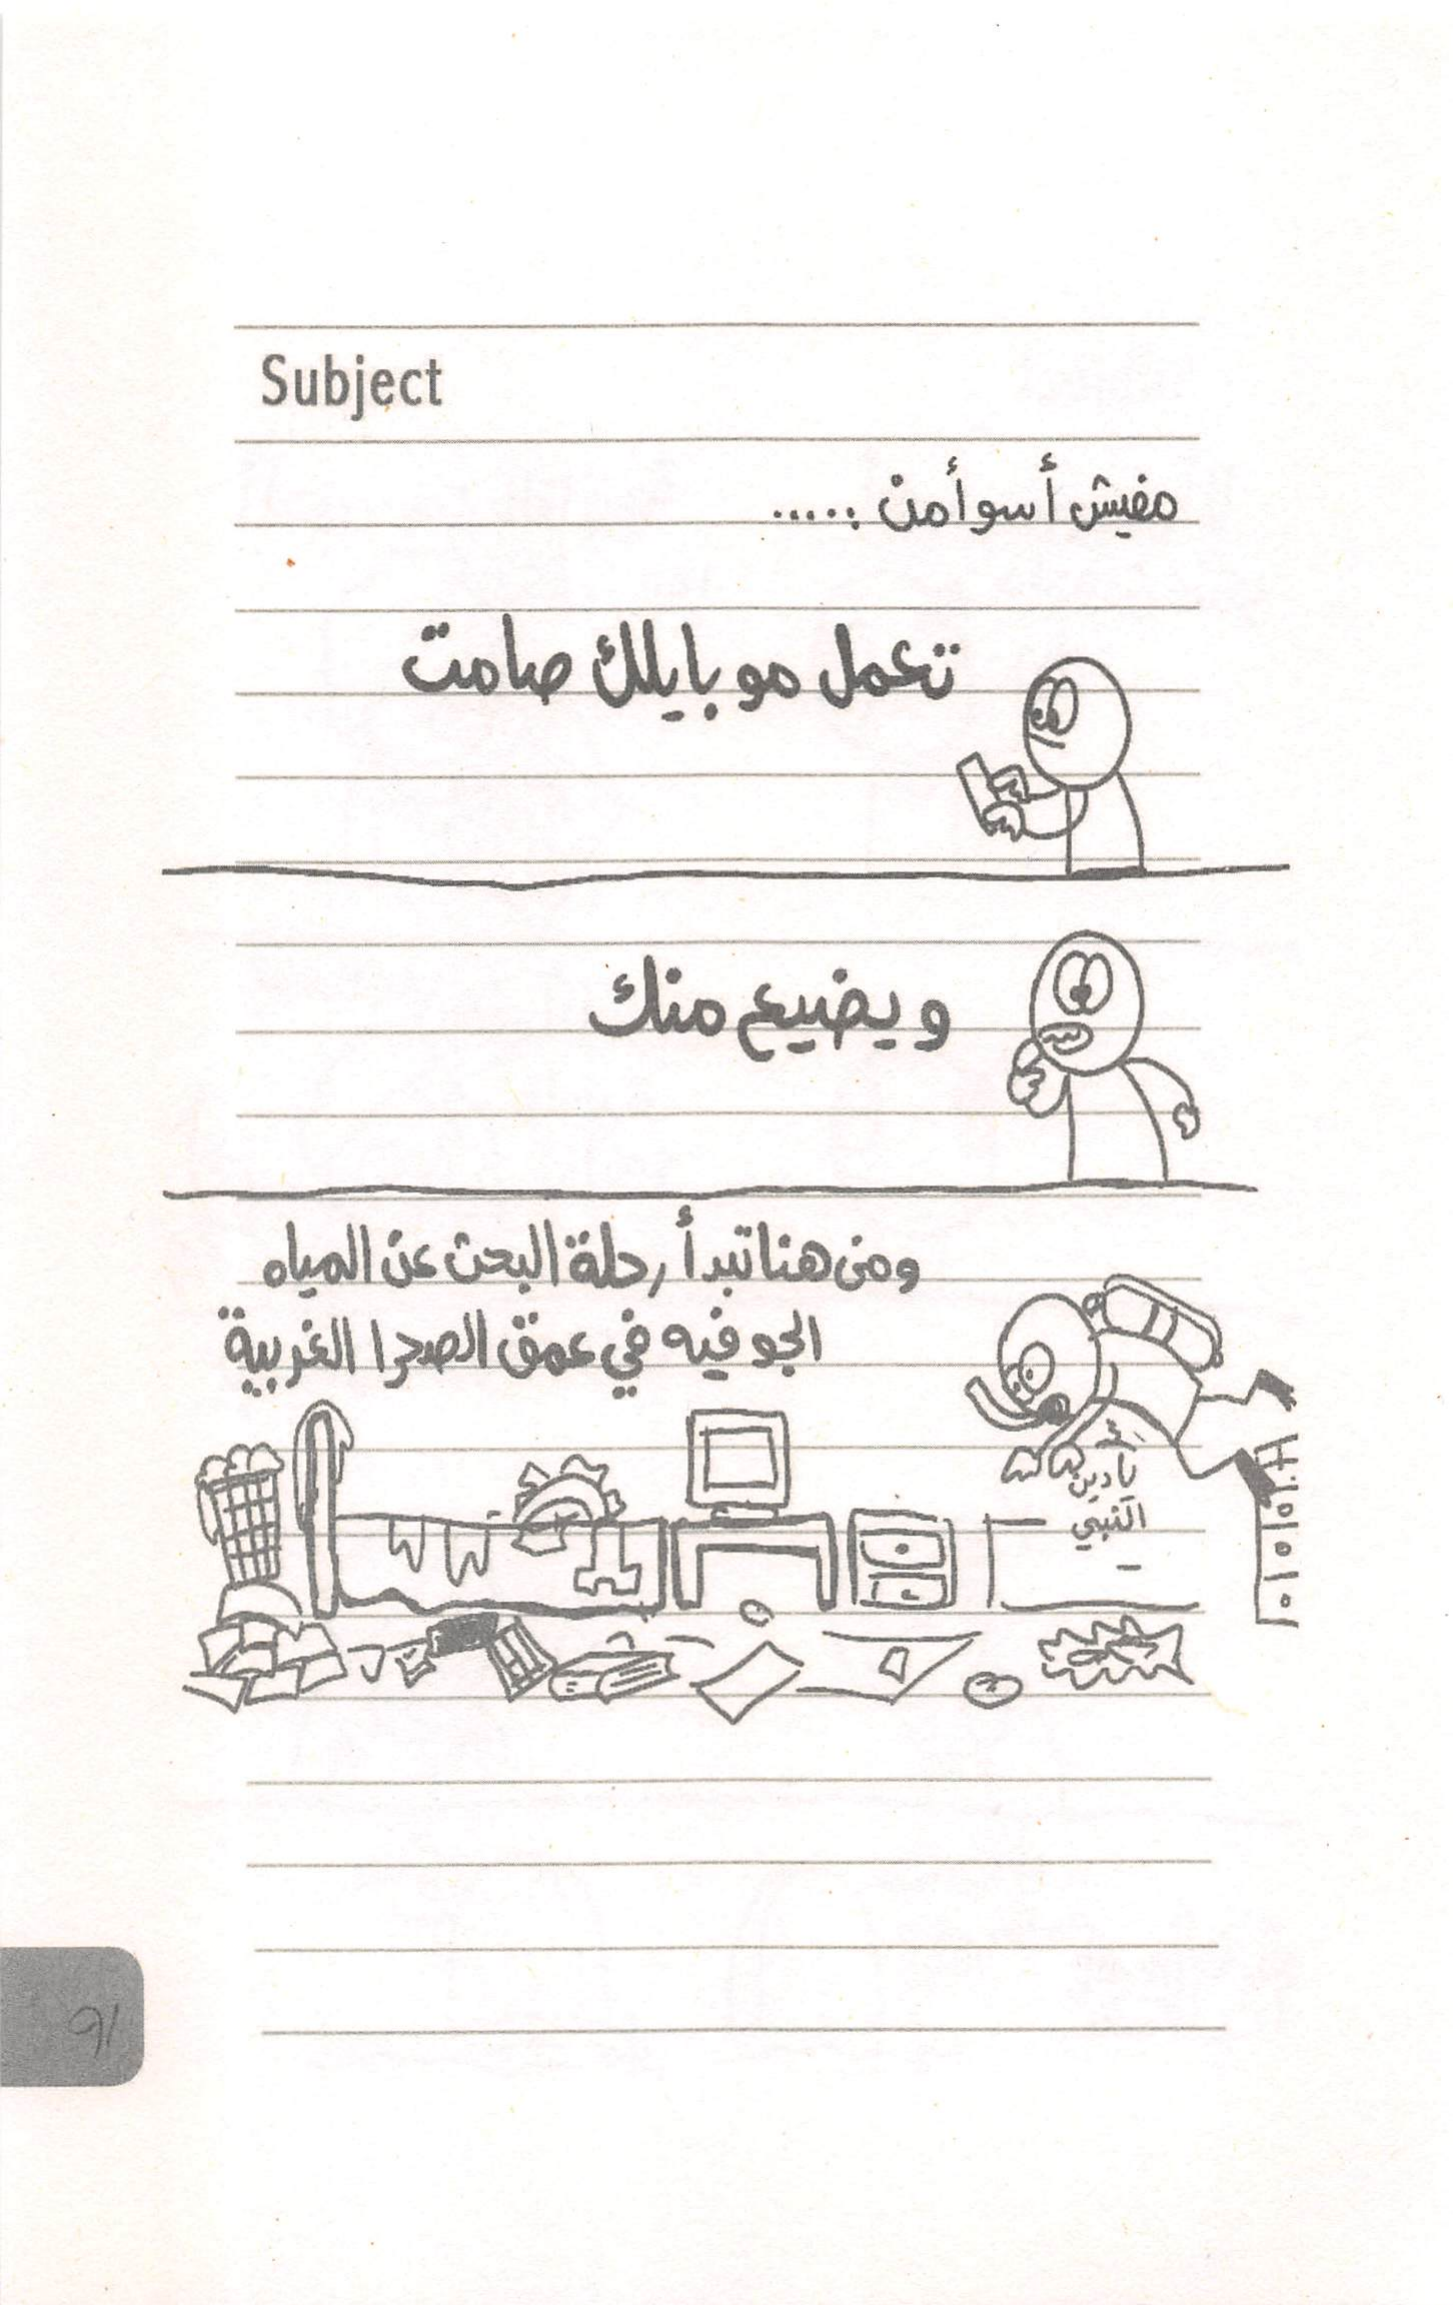 Subject
مفيش أسوأ من :....
تعمل موبايلك صامت
ويضيع منك
ومن هنا تبدأ رحلة البحث عن المياه
الجوفيه في عمق الصحرا الغربية
نادين
النبي